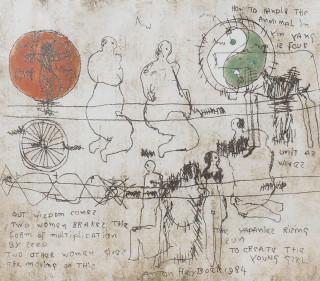 HOW TO HANDLE THE
ANNIMAL IN
YIN YANG
IS FOUR
UNIT AZ
WIVES
OUT WIZDOM COMES
TWO WOMEN BRAKES THE
FORM OF MULTIPLICATION
BY ZERO
TWO OTHER WOMEN GIVES
THE MOVING OF THE
THE YAPANIEZ RIZING
ZUN
TO CREATE THE
YOUNG GIRL
ANTON HEYBOER 1984